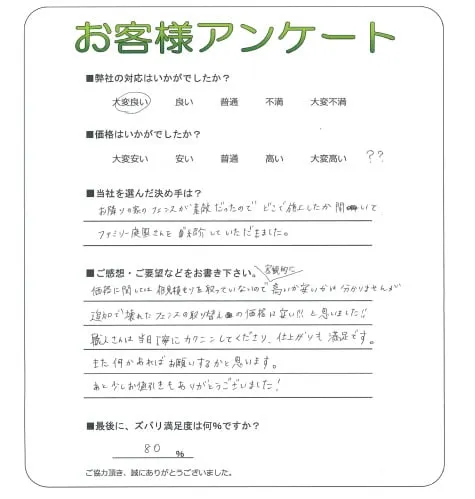 お客様アンケート
■弊社の対応はいかがでしたか？
大変良い 良い 普通 不満 大変不満
■価格はいかがでしたか？
大変安い 安い 普通 高い 大変高い ??
■当社を選んだ決め手は？
お隣りの家のフェンスが素敵だったので どこで施工したか聞いて
ファミリー庭園さんをご紹介していただきました。
■ご感想・ご要望などをお書き下さい。
客観的に
価格に関しては相見積もりを取っていないので高いか安いかは分かりませんが
追加で壊れたフェンスの取り替えの価格は安い!!と思いました!!
職人さんは当日丁寧にカクニンしてくださり、仕上がりも満足です。
また何かあればお願いするかと思います。
あと少しお値引きもありがとうございました!
■最後に、ズバリ満足度は何%ですか？
80 %
ご協力頂き、誠にありがとうございました。